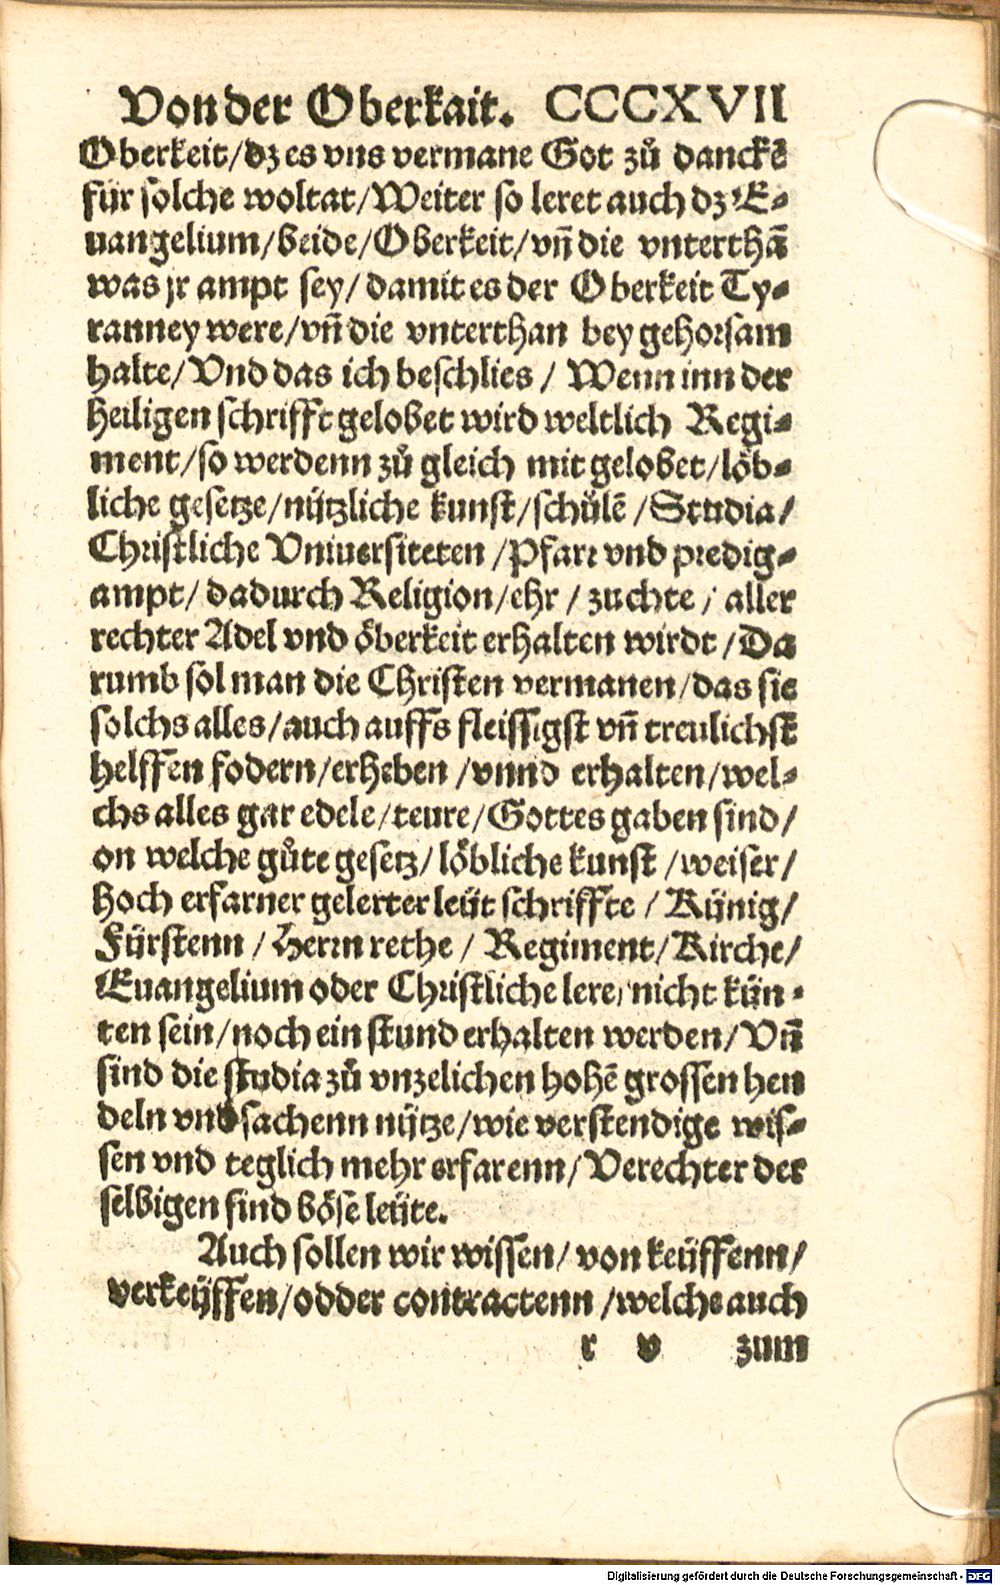 Von der Oberkait. CCCXVII
Oberkeit/dz es vns vermane Got zů danckē
für solche woltat/Weiter so leret auch dz E-
uangelium/beide/Oberkeit/vñ die vnterthā
was jr ampt sey/damit es der Oberkeit Ty-
ranney were/vñ die vnterthan bey gehorsam
halte/Vnd das ich beschlies/ Wenn inn der
heiligen schrifft gelobet wird weltlich Regi-
ment/so werdenn zů gleich mit gelobet/löb-
liche gesetze/nützliche kunst/schůlē/Studia/
Christliche Vniuersiteten/Pfarr vnd predig-
ampt/dadurch Religion/ehr/zuchte/aller
rechter Adel vnd öberkeit erhalten wirdt/Da
rumb sol man die Christen vermanen/das sie
solchs alles/auch auffs fleissigst vñ treulichst
helffen fodern/erheben/vnnd erhalten/wel-
chs alles gar edele/teure/Gottes gaben sind/
on welche gůte gesetz/löbliche kunst/weiser/
hoch erfarner gelerter leüt schriffte/Künig/
Fürstenn/Herrn rethe/Regiment/Kirche/
Euangelium oder Christliche lere/nicht kün-
ten sein/noch ein stund erhalten werden/Vñ
sind die studia zů vnzelichen hohē grossen hen
deln vnd sachenn nütze/wie verstendige wis-
sen vnd teglich mehr erfarenn/Verechter der
selbigen sind böse leüte.
Auch sollen wir wissen/von keüffenn/
verkeüffen/odder contractenn/welche auch
r v zum
Digitalisierung gefördert durch die Deutsche Forschungsgemeinschaft - DFG